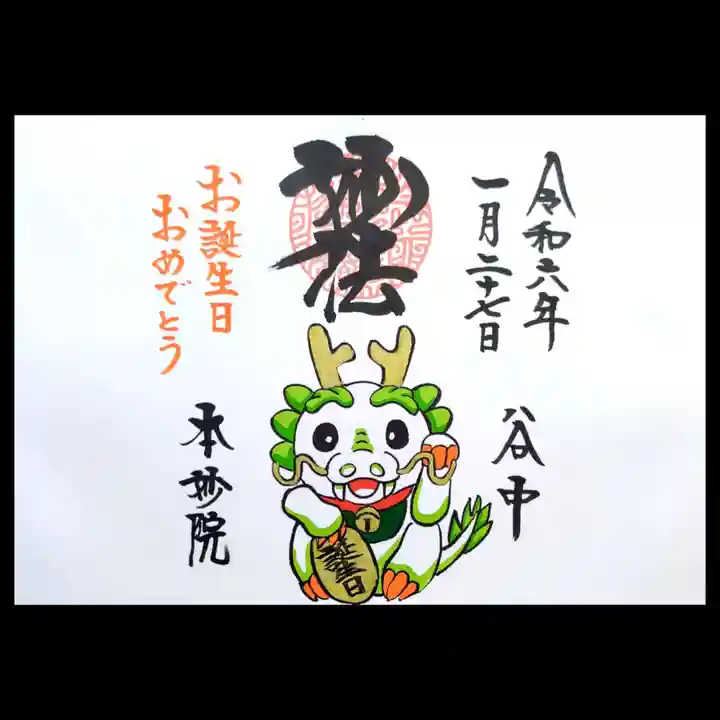 令和六年
一月二十七日
谷中
妙法
お誕生日
おめでとう
本妙院
誕生日